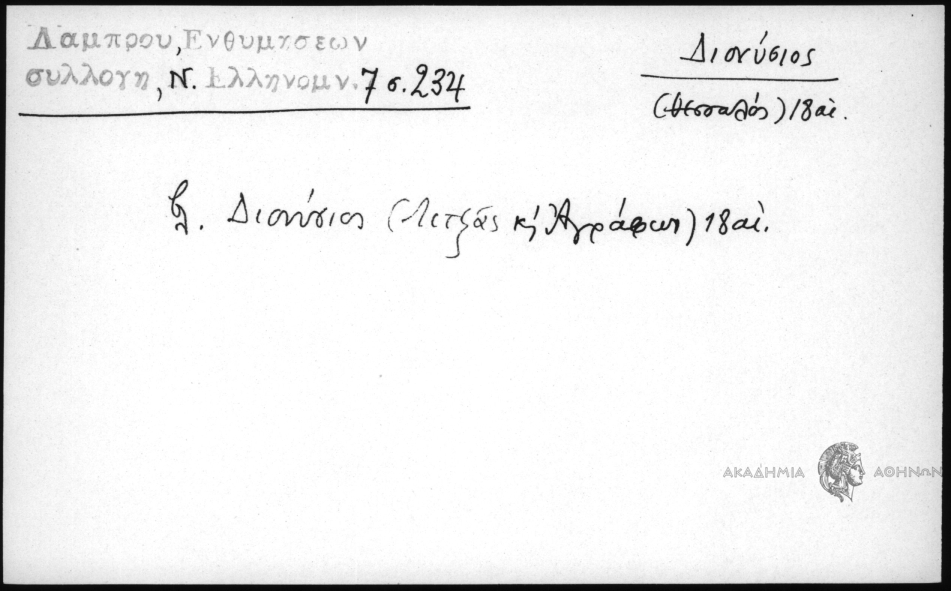 Λαμπρου, Ενθυμησεων
συλλογη, Ν. Ελληνομν. 7 σ. 234
Διονύσιος
(Θεσσαλός) 18 αἰ.
βλ. Διονύσιος (Λιτζᾶς κ̀ Ἀγράφων) 18 αἰ.
ΑΚΑΔΗΜΙΑ ΑΘΗΝΩΝ